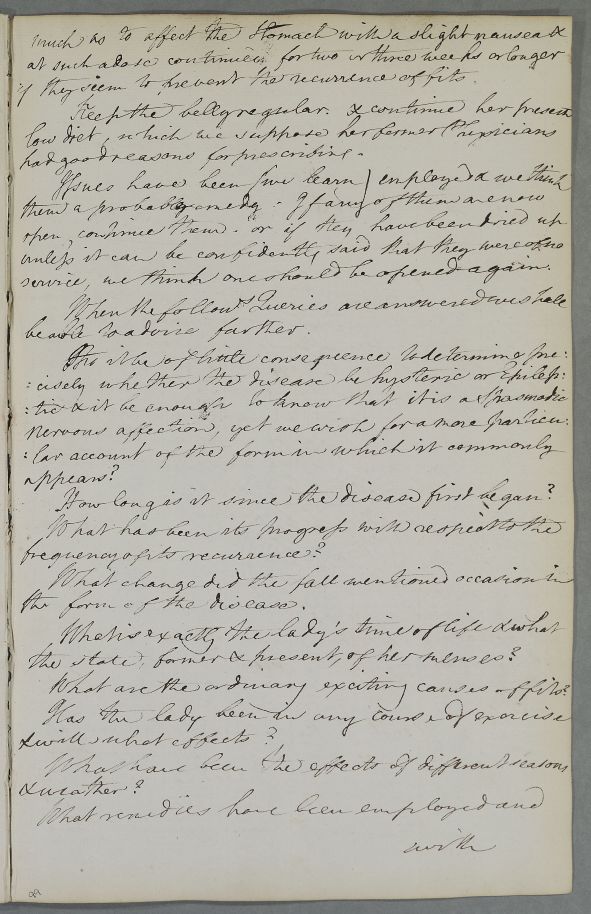 much as to affect the stomach with a slight nausea &
at such a dose continued for two or three weeks or longer
if they seem to prevent the recurrence of fits.
Keep the belly regular. & continue her present
low diet, which we suppose her former Physicians
had good reasons for prescribing.
Issues have been (we learn) employed & we think
them a probable remedy. If any of them are now
open, continue them. or if they have been dried up
unless it can be confidently said that they were of no
service, we think one should be opened again.
When the follows Queries are answered we shall
be able to advise further.
Tho it be of little consequence to determine pre:
:cisely whether the disease be hysteric or Epilep:
:tic & it be enough to know that it is a spasmodic
nervous affection, yet we wish for a more particu:
:lar account of the form in which it commonly
appears?
How long is it since the disease first began?
What has been its progress with respect to the
frequency of its recurrence?
What change did the fall mentioned occasion in
the form of the disease.
What is exactly the lady's time of life & what
the state, former & present, of her menses?
What are the ordinary exciting causes of fits?
Has the lady been in any course of exercise
& with what effects?
What have been the effects of different seasons
& weather?
What remedies have been employed and
with